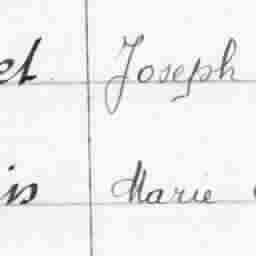 et Joseph
is Marie